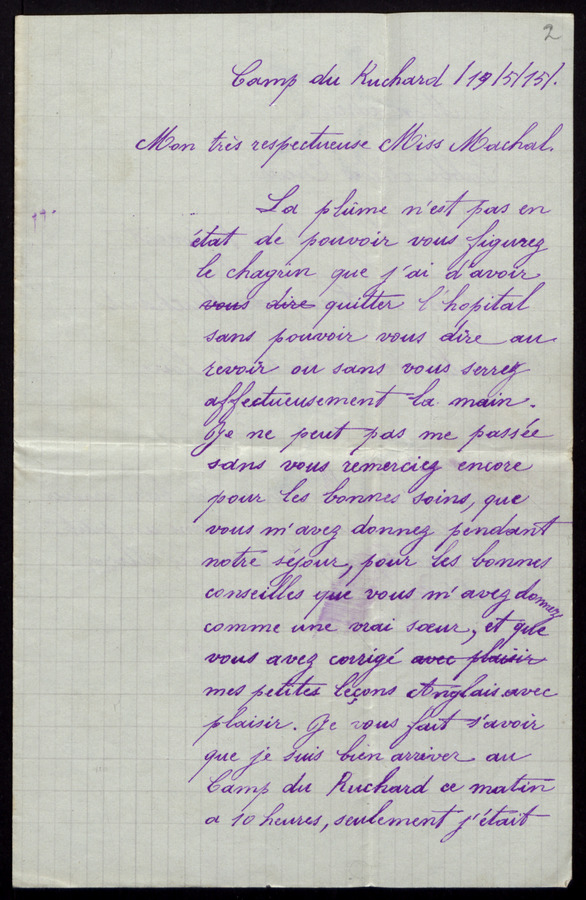 2
Camp du Ruchard / 19/5/15/.
Mon très respectueuse Miss Machal.
La plûme n'est pas en
état de pouvoir vous figurez
le chagrin que j'ai d'avoir
vous dire quitter l'hopital
sans pouvoir vous dire au
revoir ou sans vous serrez
affectueusement la main.
Je ne peut pas me passée
sans vous remerciez encore
pour les bonnes soins, que
vous m'avez donnez pendant
notre séjour, pour les bonnes
conseilles que vous m'avez donnez
comme une vrai sœur, et que
vous avez corrigé avec plaisir
mes petites leçons Anglais avec
plaisir. Je vous fait s'avoir
que je suis bien arriver au
Camp du Ruchard ce matin
a 10 heures, seulement j'était